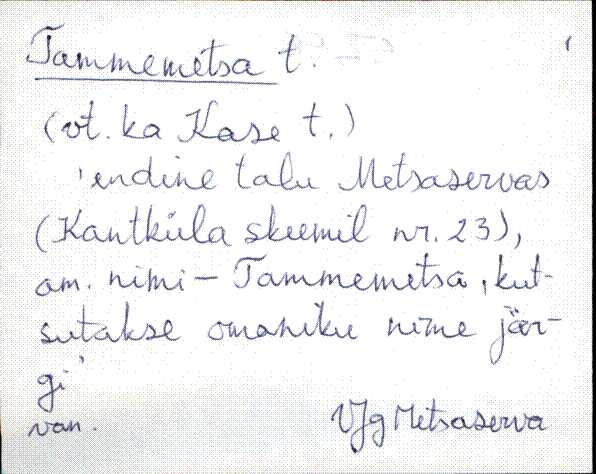 Tammemetsa t.
(vt. ka Kase t.)
'endine talu Metsaservas
(Kantküla skeemil nr. 23),
am. nimi – Tammemetsa, kut-
sutakse omaniku nime jär-
gi'
van. VJg Metsaserva